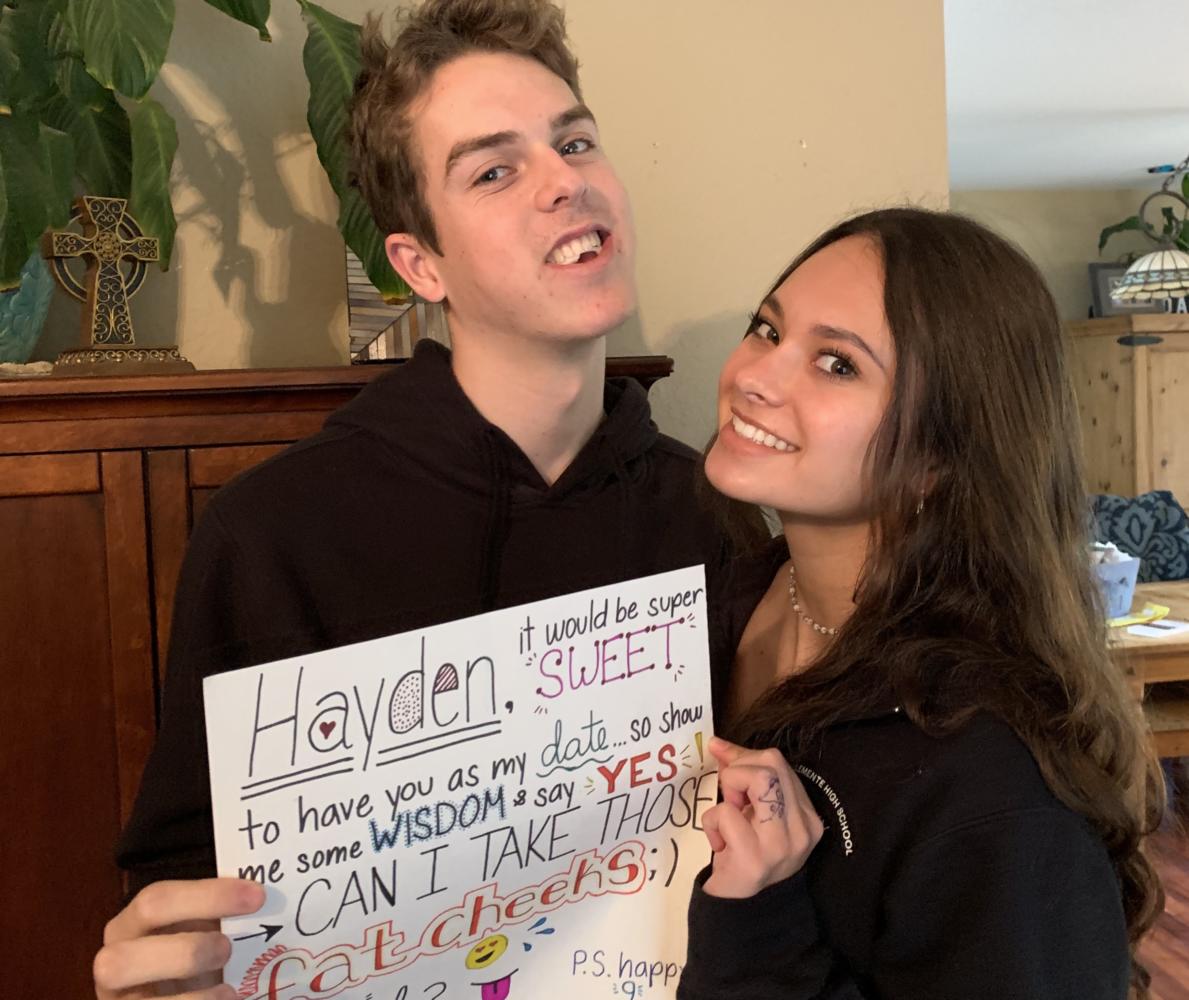 Hayden, it would be super
SWEET
to have you as my date...so show
me some WISDOM & say YES!
→ CAN I TAKE THOSE
fat cheeks ;)
P.S. happy
9
EMENTE HIGH SCHOOL